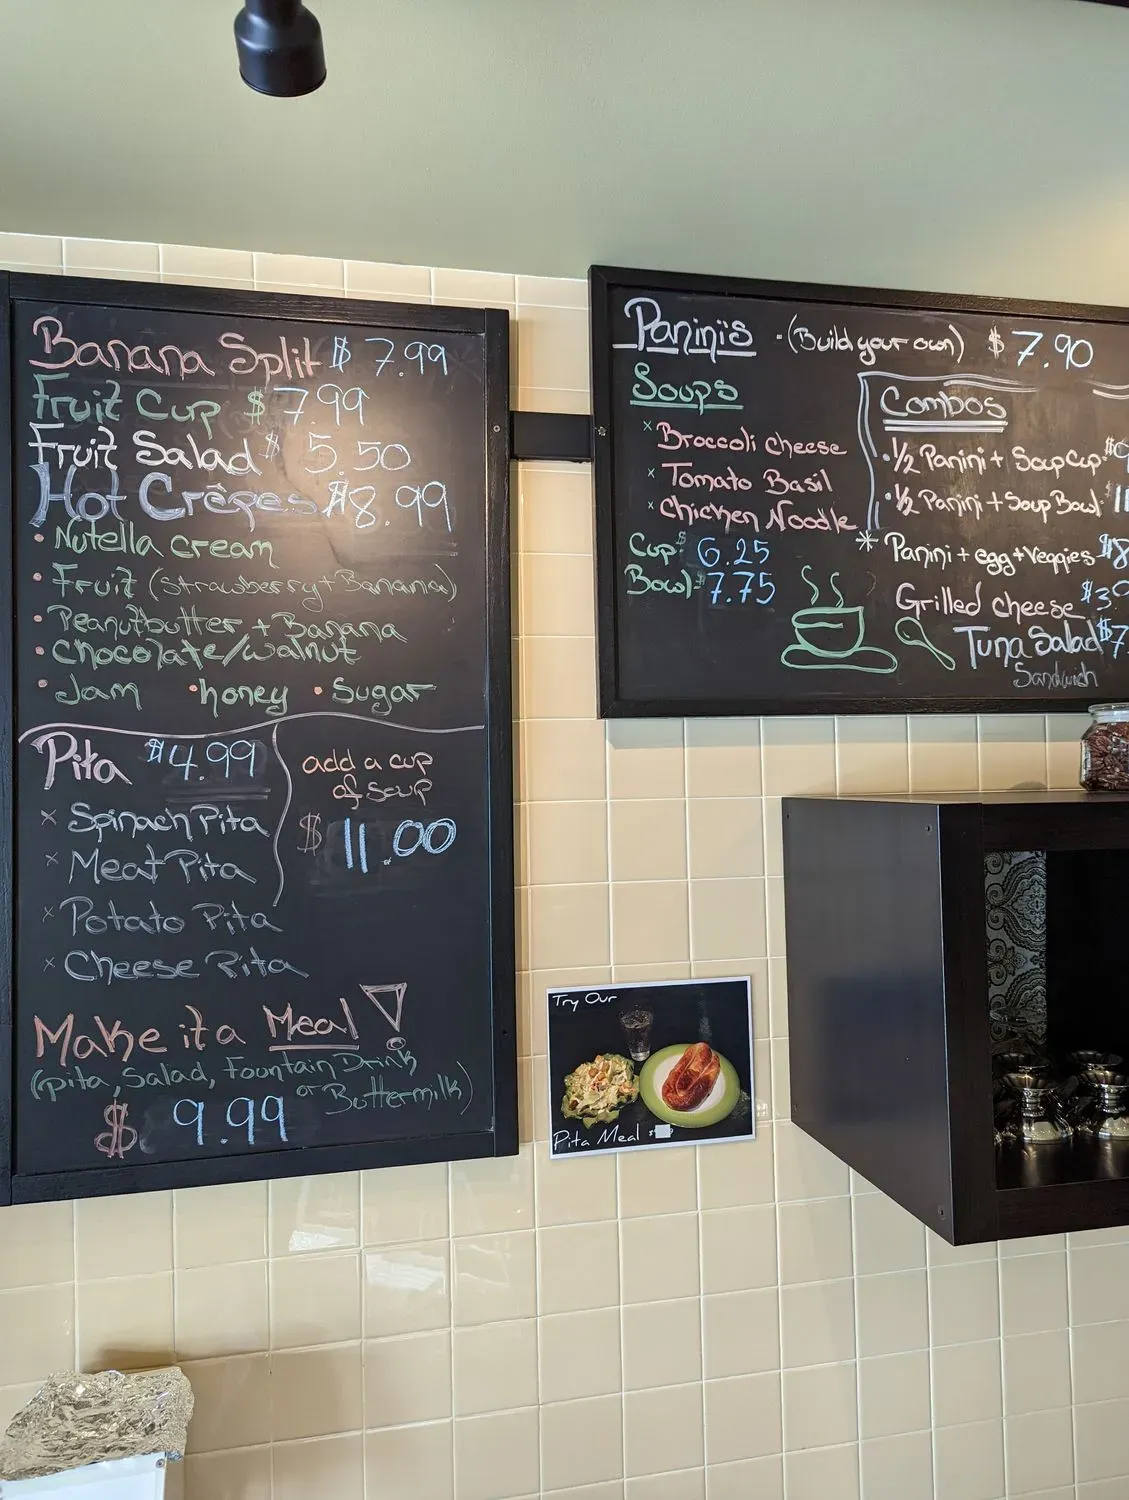 Banana Split $ 7.99
Fruit Cup $ 7.99
Fruit Salad $ 5.50
Hot Crêpes $8.99
• Nutella cream
• Fruit (Strawberry + Banana)
• Peanutbutter + Banana
• chocolate/walnut
• Jam • honey • Sugar
Pita $4.99
x Spinach Pita
x Meat Pita
x Potato Pita
x Cheese Pita
add a cup
of soup
$ 11.00
Make it a Meal!
(pita, Salad, Fountain Drink
or Buttermilk)
$ 9.99
Panini's - (Build your own) $ 7.90
Soups
x Broccoli cheese
x Tomato Basil
x Chicken Noodle
Cup $ 6.25
Bowl $ 7.75
Combos
• 1/2 Panini + Soup Cup
• 1/2 Panini + Soup Bowl
* Panini + egg + Veggies $8
Grilled cheese $3
Tuna Salad $7
Sandwich
Try Our
Pita Meal